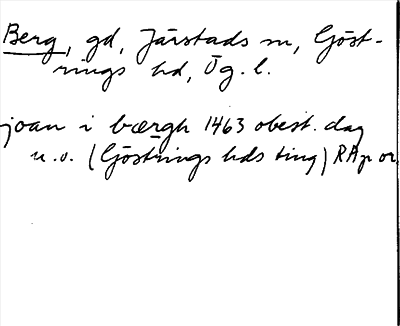 Berg, gd, Järstads sn, Göst-
rings hd, Ög. l.
joan i bærgh 1463 obest. dag
u. o. (Göstrings hds ting) RAp or